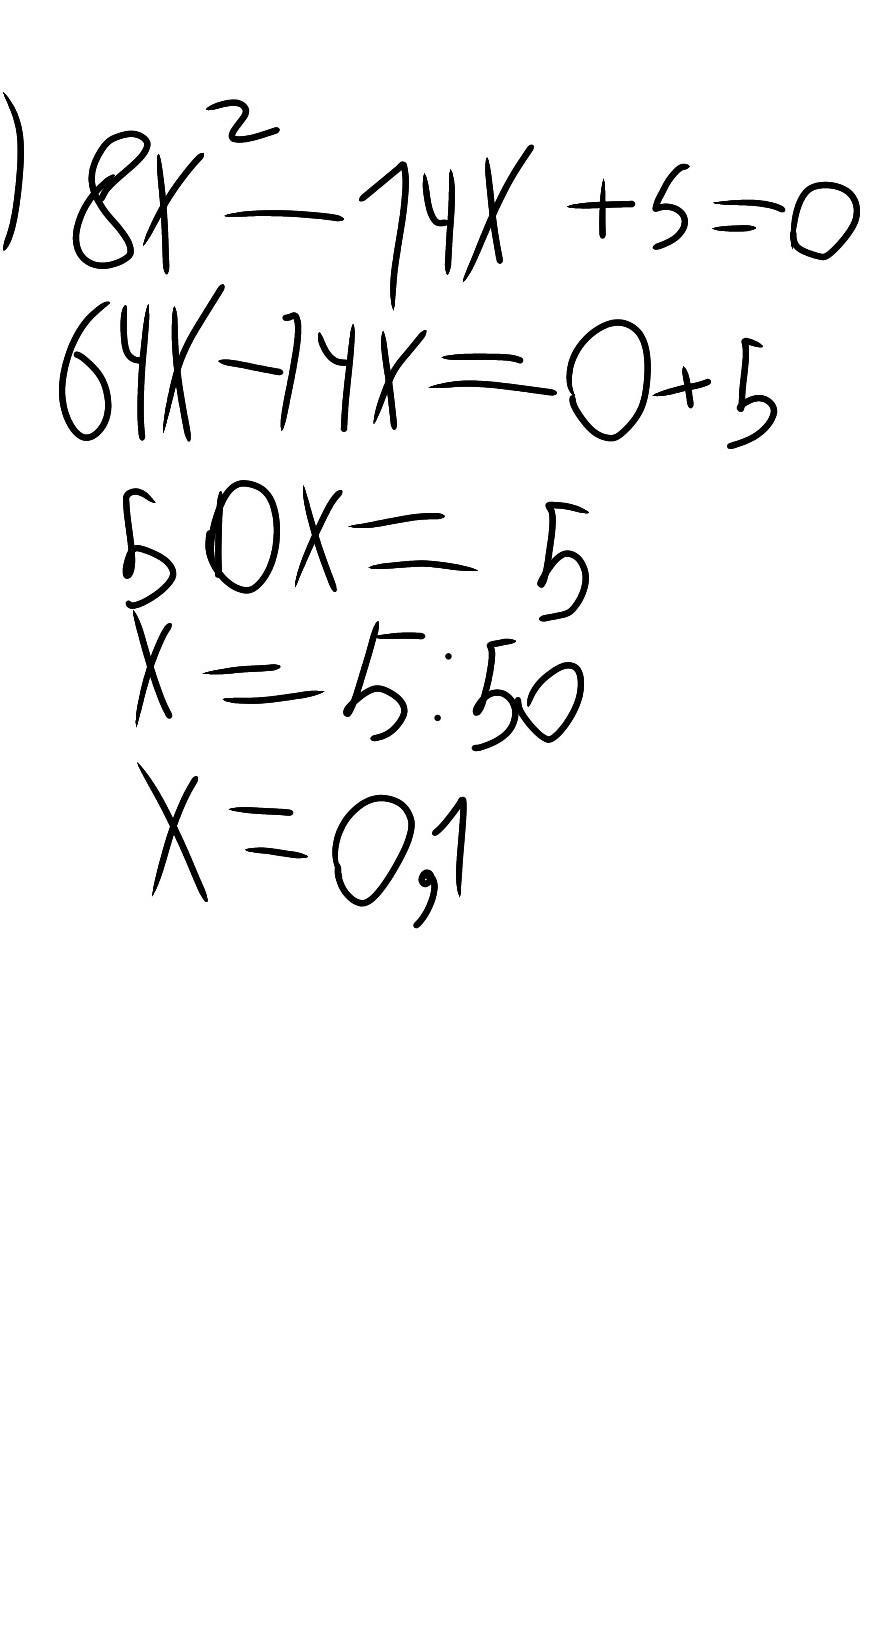 ) 8x² - 14x + 5 = 0
64x - 14x = 0 + 5
50x = 5
x = 5 : 50
x = 0,1